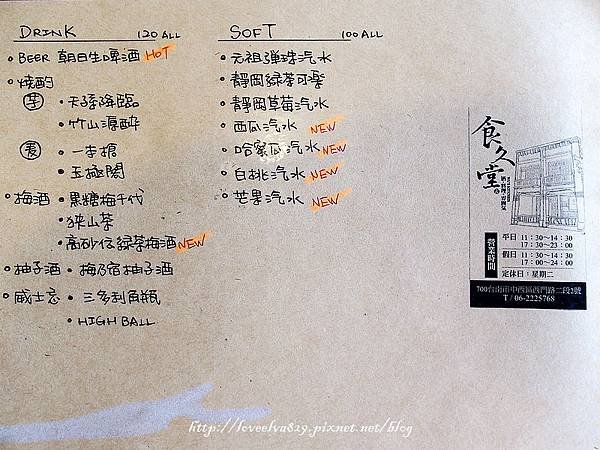 DRINK 120 ALL
• BEER 朝日生啤酒 HOT
• 燒酌
芋 • 天孫降臨
• 竹山源酔
麦 • 一本槍
• 玉極閣
• 梅酒 • 黑糖梅千代
• 狭山茶
• 高砂伝 緑茶梅酒 NEW
• 柚子酒 • 梅乃宿柚子酒
• 威士忌 • 三多利角瓶
• HIGH BALL
SOFT 100 ALL
• 元祖弾珠汽水
• 靜岡綠茶可樂
• 靜岡草莓汽水
• 西瓜汽水 NEW
• 哈蜜瓜汽水 NEW
• 白桃汽水 NEW
• 芒果汽水 NEW
食久堂
營業時間
平日 11:30~14:30
17:30~23:00
假日 11:30~14:30
17:00~24:00
定休日:星期二
700台南市中西區西門路二段2號
T / 06-2225768
http://loveelva829.pixnet.net/blog